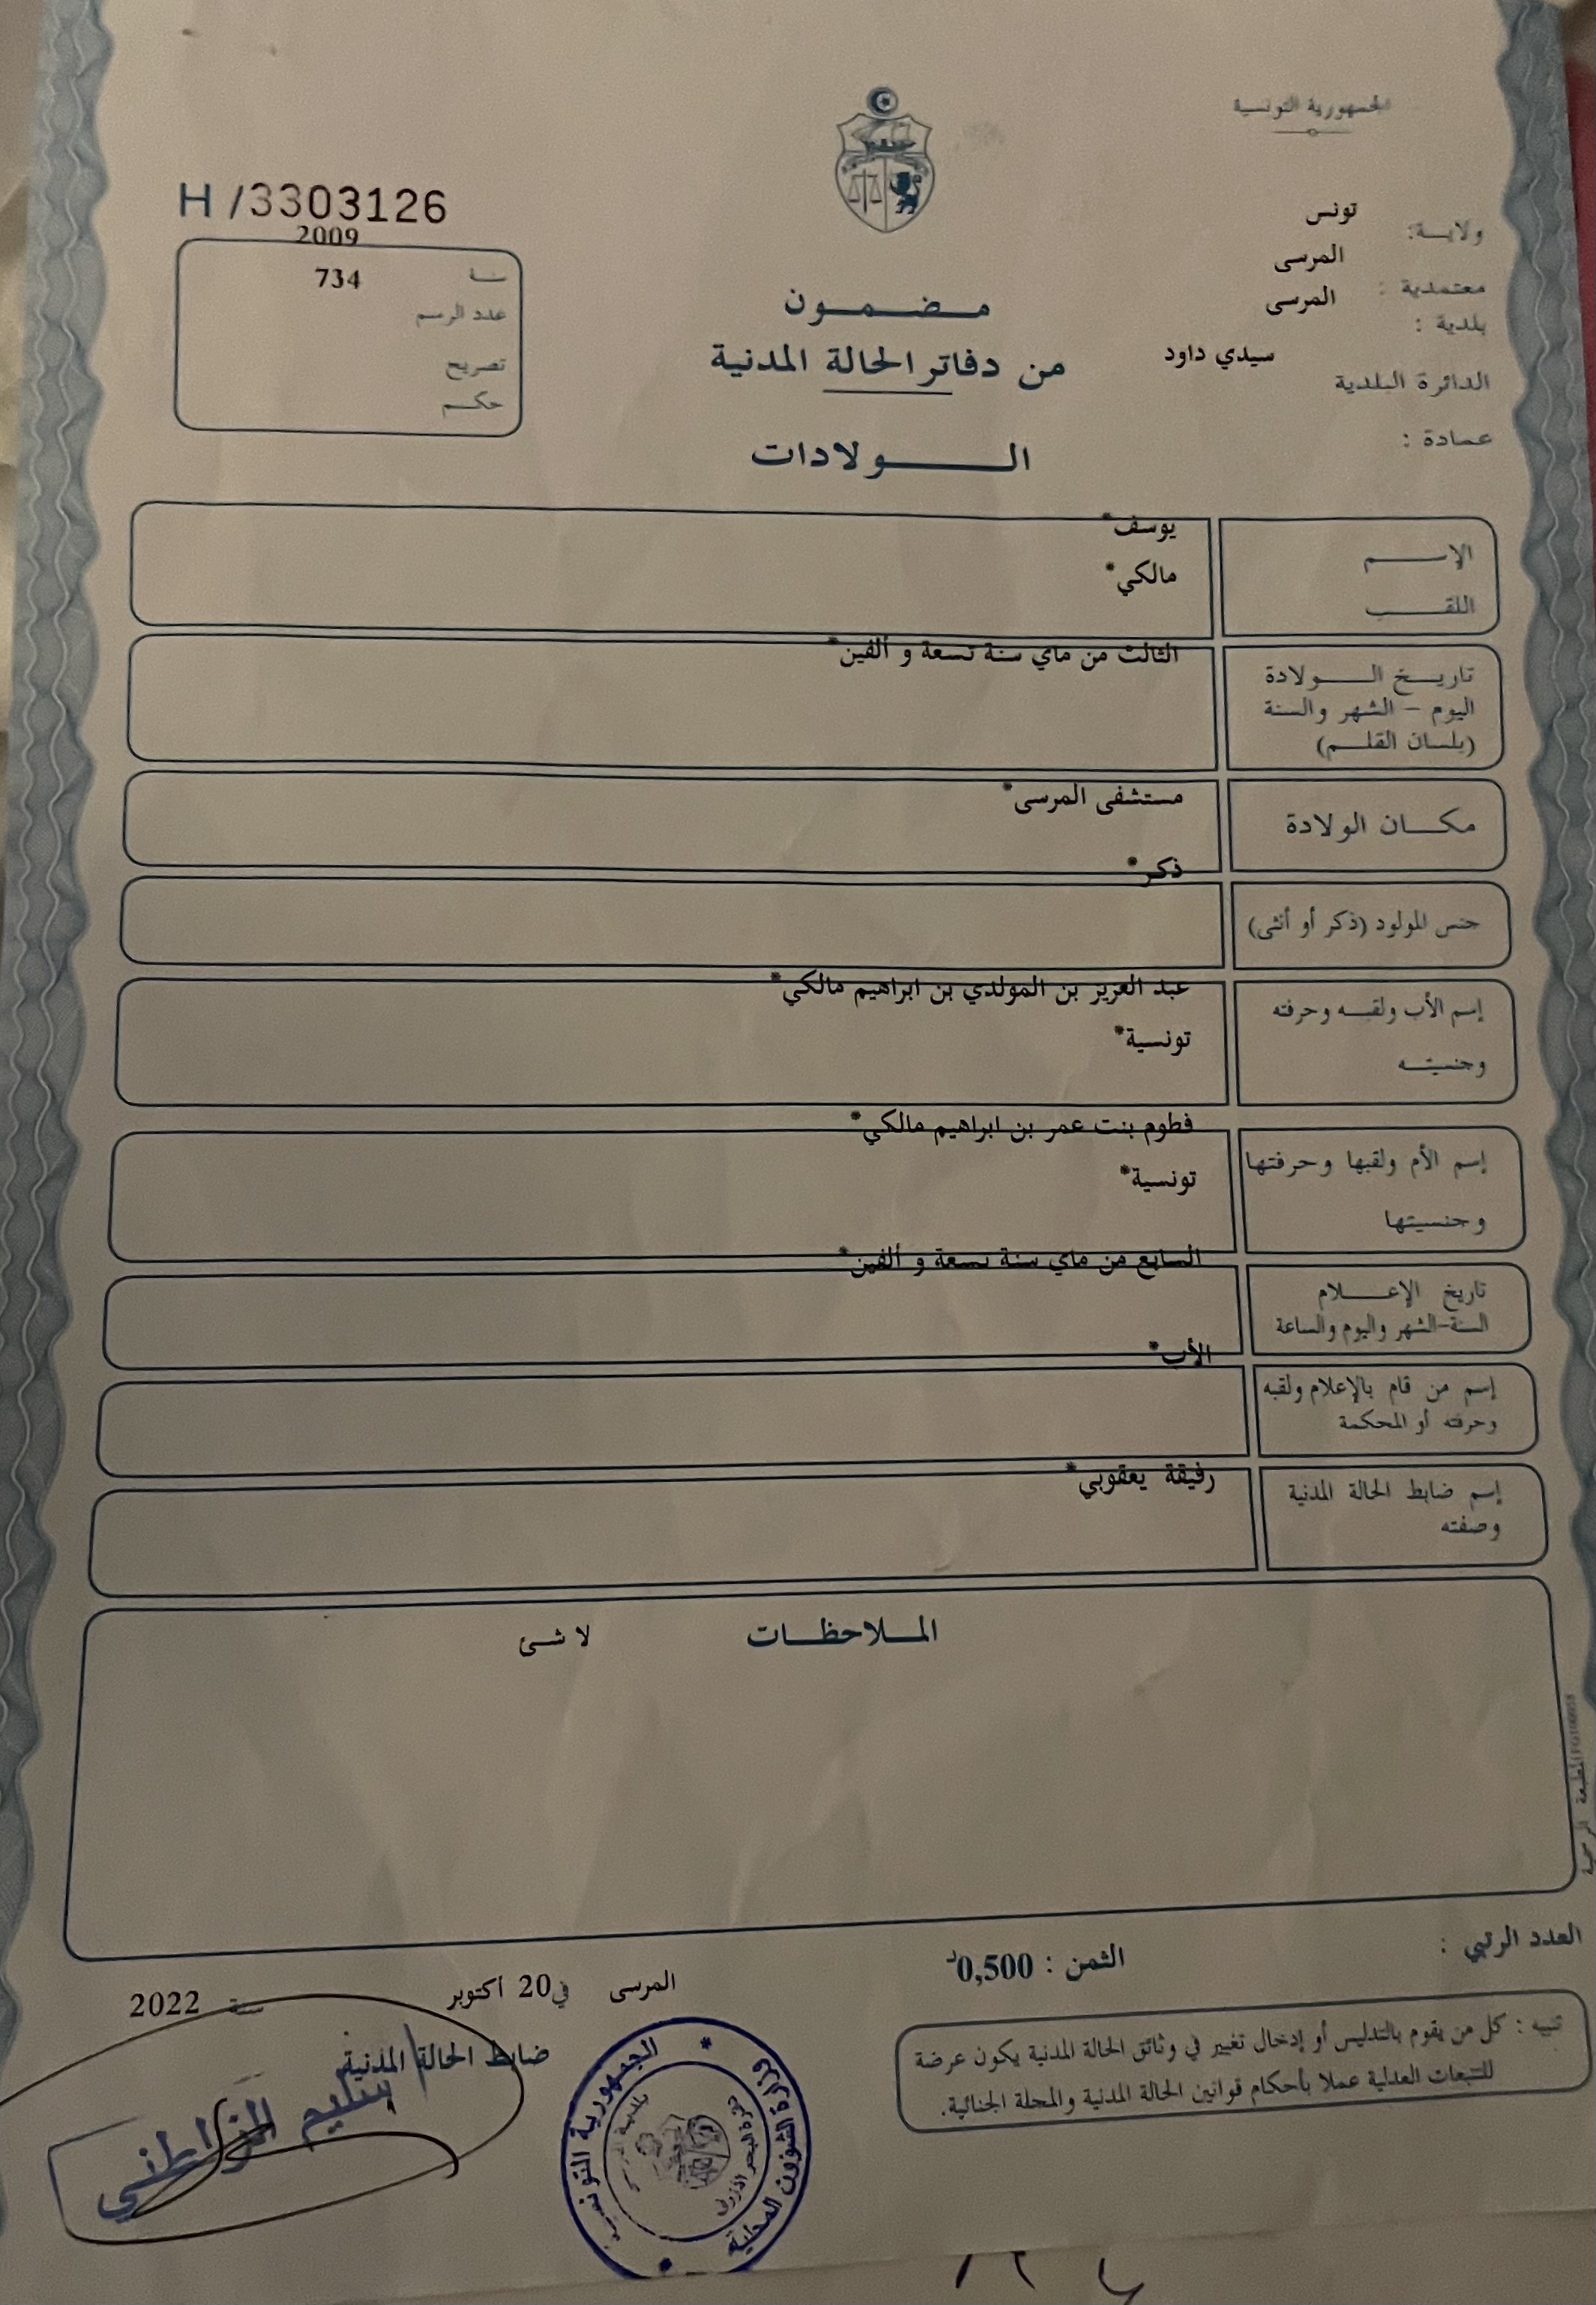 الجمهورية التونسية
H /3303126
ولايـــة: تونس
معتمدية : المرسى
بلدية : المرسى
الدائرة البلدية سيدي داود
عمادة :
2009
سنــة 734
عدد الرسم
تصريح
حكــم
مــضــمــون
من دفاتر الحالة المدنية
الـــولادات
الإســـم يوسف*
اللقـــب مالكي*
تاريـــخ الـــولادة الثالث من ماي سنة تسعة و ألفين*
اليوم - الشهر والسنة
(بلسان القلـــم)
مكـــان الولادة مستشفى المرسى*
ذكر*
جنس المولود (ذكر أو أنثى)
إسم الأب ولقبـــه وحرفته عبد العزيز بن المولدي بن ابراهيم مالكي*
وجنسيتـــه تونسية*
إسم الأم ولقبها وحرفتها فطوم بنت عمر بن ابراهيم مالكي*
وجنسيتها تونسية*
السابع من ماي سنة تسعة و ألفين*
تاريخ الإعـــلام
السنة-الشهر واليوم والساعة
الأب*
إسم من قام بالإعلام ولقبه
وحرفته أو المحكمة
إسم ضابط الحالة المدنية رفيقة يعقوبي*
وصفته
المــلاحظــات لا شئ
المطبعة الرسمية
العدد الرتبي :
الثمن : 0,500د
المرسى في 20 أكتوبر سنة 2022
ضابط الحالة المدنية
سليم
تنبيه : كل من يقوم بالتدليس أو إدخال تغيير في وثائق الحالة المدنية يكون عرضة
للتتبعات العدلية عملا بأحكام قوانين الحالة المدنية والمجلة الجنائية.
الجمهورية التونسية
وزارة الشؤون المحلية
دائرة البحر الأزرق